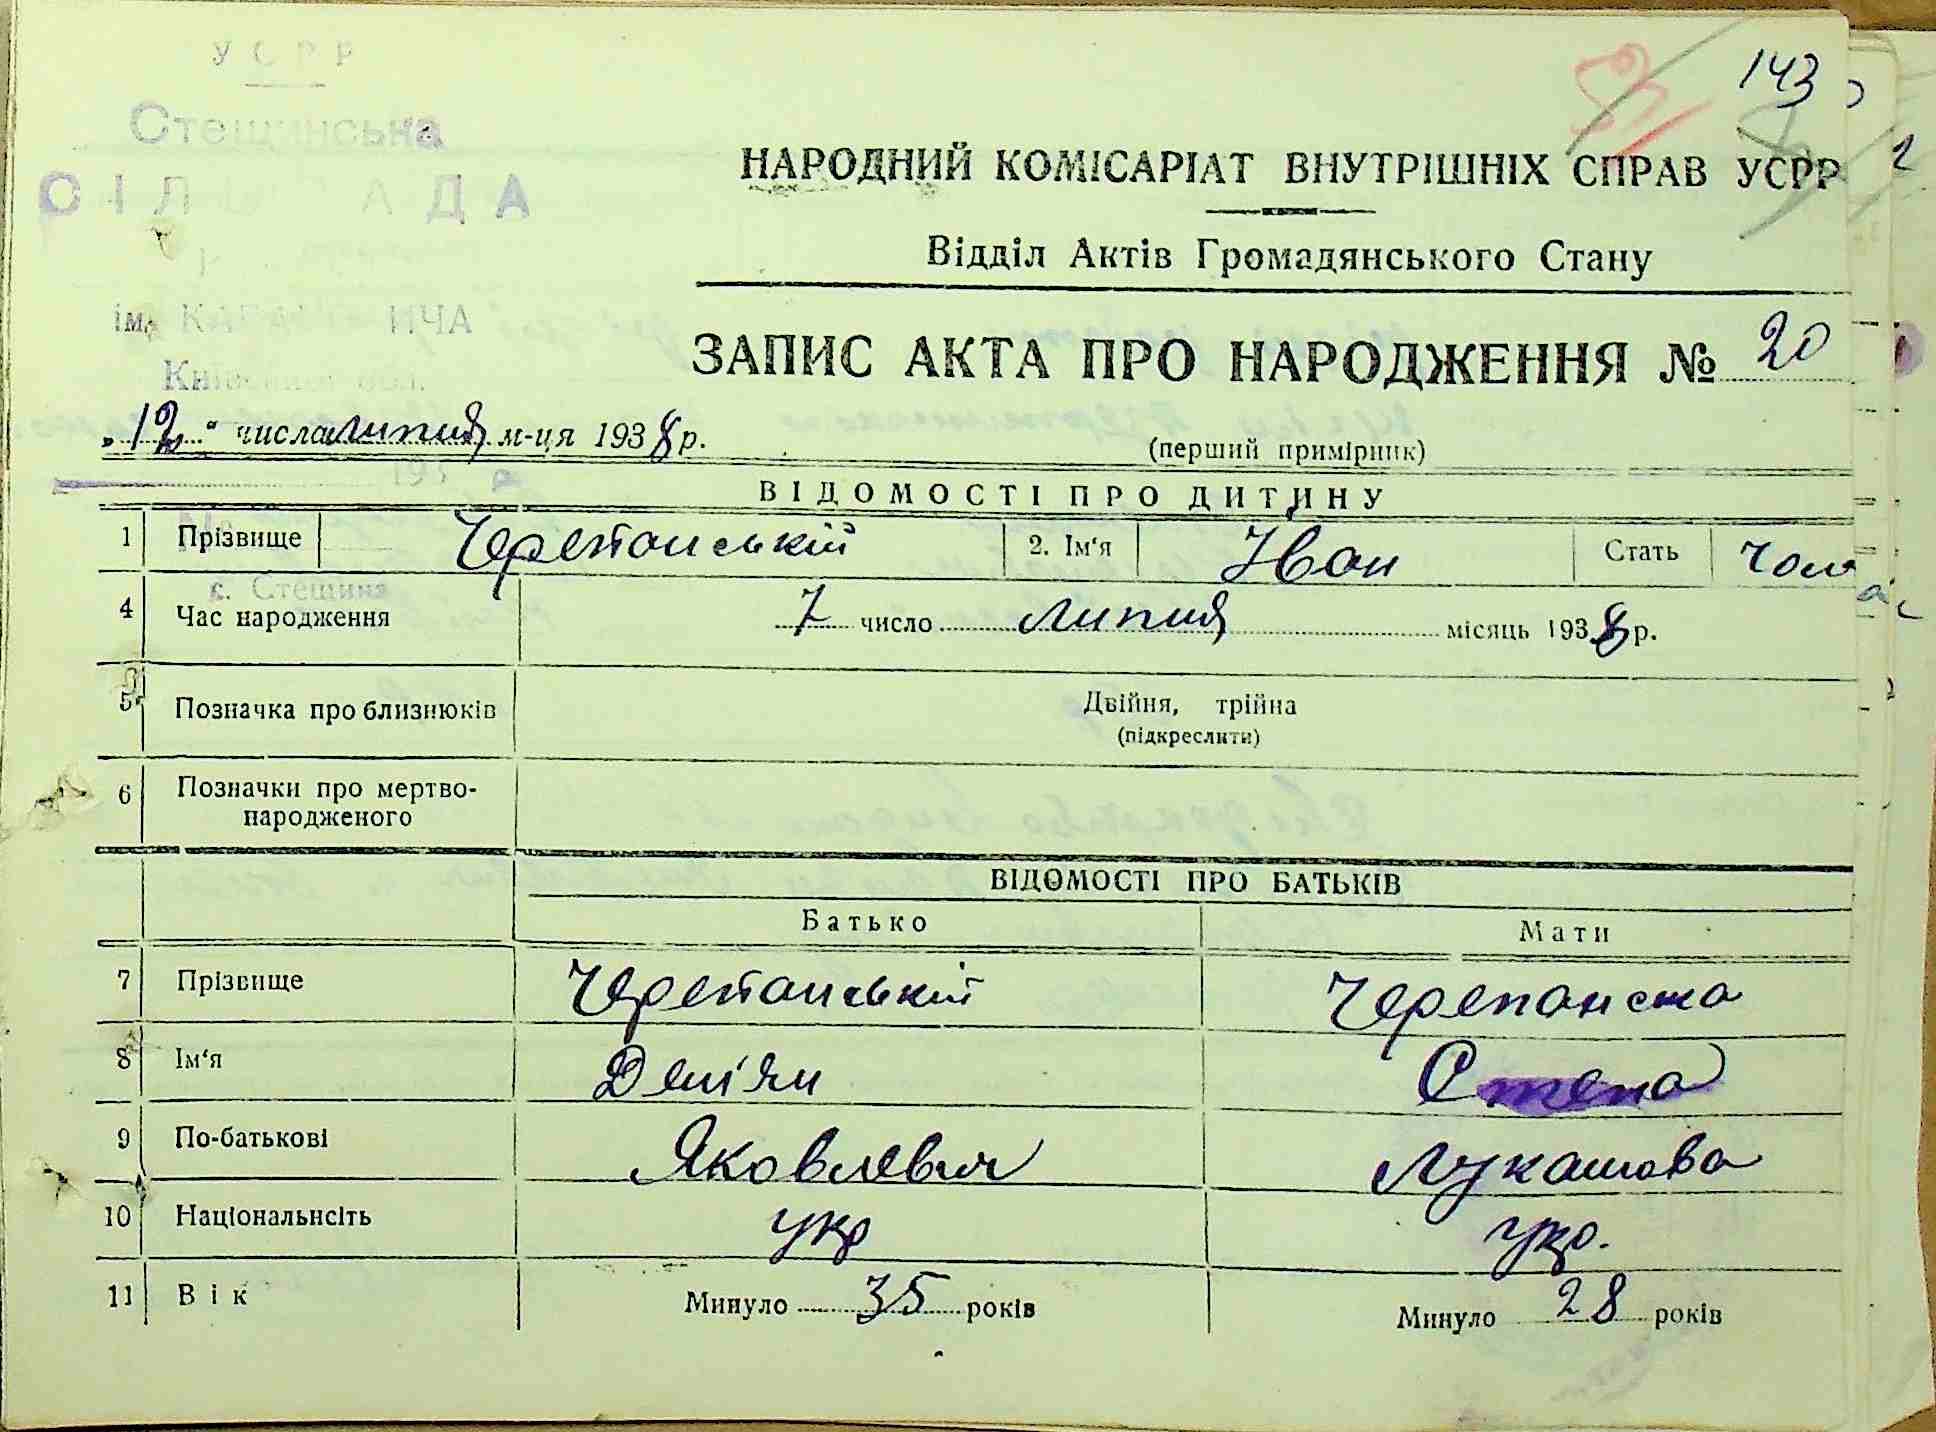 УСРР
143
Стещинська
НАРОДНИЙ КОМІСАРІАТ ВНУТРІШНІХ СПРАВ УСРР
Відділ Актів Громадянського Стану
ЗАПИС АКТА ПРО НАРОДЖЕННЯ № 20
„12“ числа липня м-ця 1938 р.
(перший примірник)
ВІДОМОСТІ ПРО ДИТИНУ
1 Прізвище Черепанський 2. Ім'я Іван Стать чол
с. Стещина
4 Час народження 7 число липня місяць 1938 р.
5 Позначка про близнюків Двійня, трійна
(підкреслити)
6 Позначки про мертво-
народженого
ВІДОМОСТІ ПРО БАТЬКІВ
Батько Мати
7 Прізвище Черепанський Черепанска
8 Ім'я Дем'ян
9 По-батькові Яковлевич Лукашова
10 Національнсіть укр укр.
11 Вік Минуло 35 років Минуло 28 років